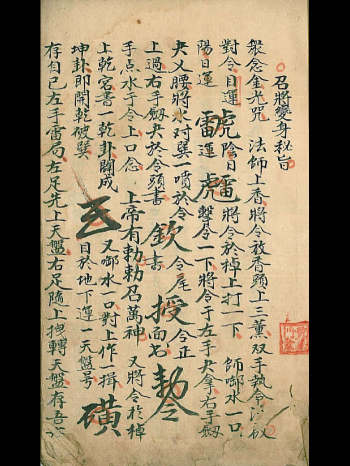 召將變身秘旨
衆念金光咒 法師上香將令放香頭上三薫双手執令
對令目運 陰日 將令於棹上打一下 師啣水一口
陽日運雷運虎擊令一下將令于左手大拿右手劔
夬又腰將水对巽一噴於令 令尾 令正
上過右手劔夬於令頭書欽書授面右勅令
手点水于令上口念 上帝有勅勅召萬神 又將令於棹
上乾宮書一乾卦開成 又啣水一口對上作一揖
坤卦即開乾破巽 目於地下運一天盤号
存自己左手雷局左足先上天盤右足隨上 轉天盤存吾